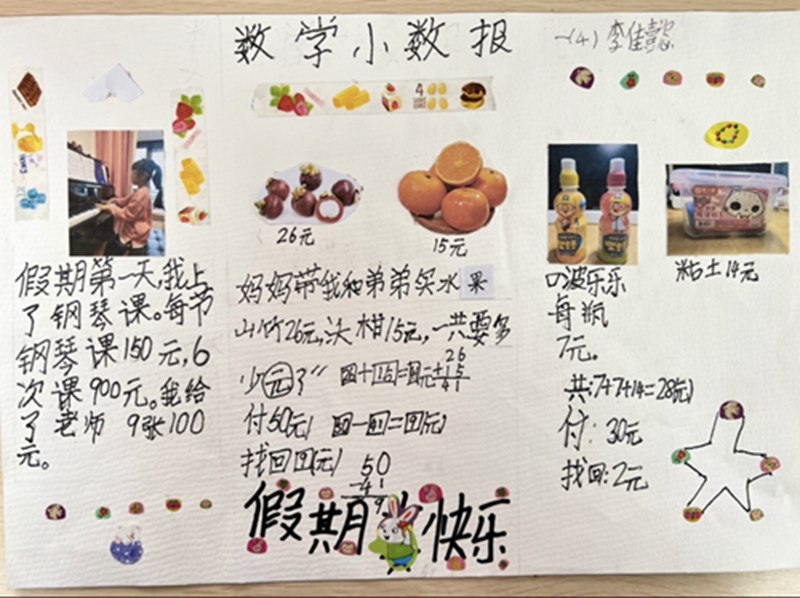 数学小数报
一(4) 李佳懿
假期第一天,我上
了钢琴课。每节
钢琴课150元,6
次课900元。我给
了老师 9张100
元。
26元
15元
妈妈带我和弟弟买水果
山竹26元,沃柑15元,一共要多
少(元)?
26
+15
41
付50元
找回9(元)
50
-41
9
假期快乐
粘土14元
口波乐乐
每瓶
7元。
共:7+7+14=28(元)
付:30元
找回:2元